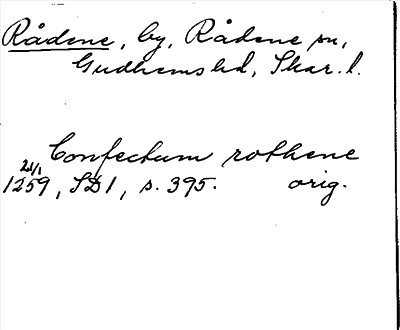 Rådene, by, Rådene sn,
Gudhems hd, Skar. l.
Confectum rothene
21/1
1259, SD 1, s. 395. orig.